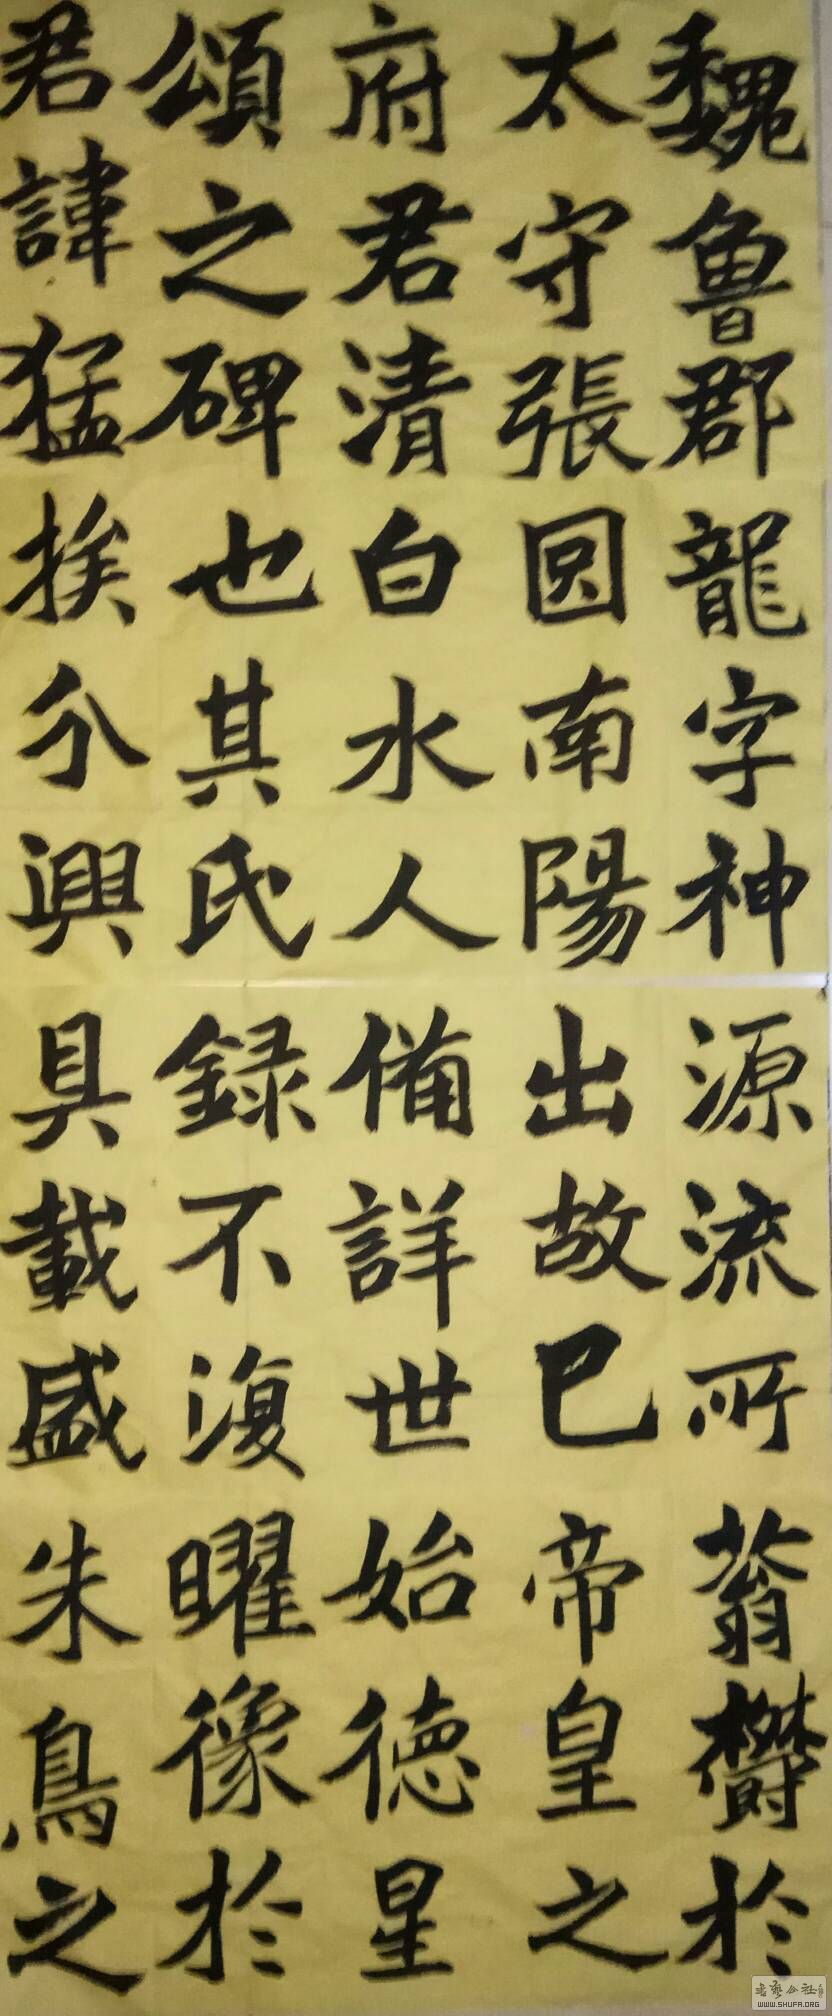 魏魯郡
太守張
府君清
頌之碑
君諱猛
龍字神
囧南陽
白水人
也其氏
族分興
源流所
出故已
俻詳世
録不復
具載盛
蓊欝於
帝皇之
始德星
曜像於
朱鳥之
書藝公社
WWW.SHUFA.ORG